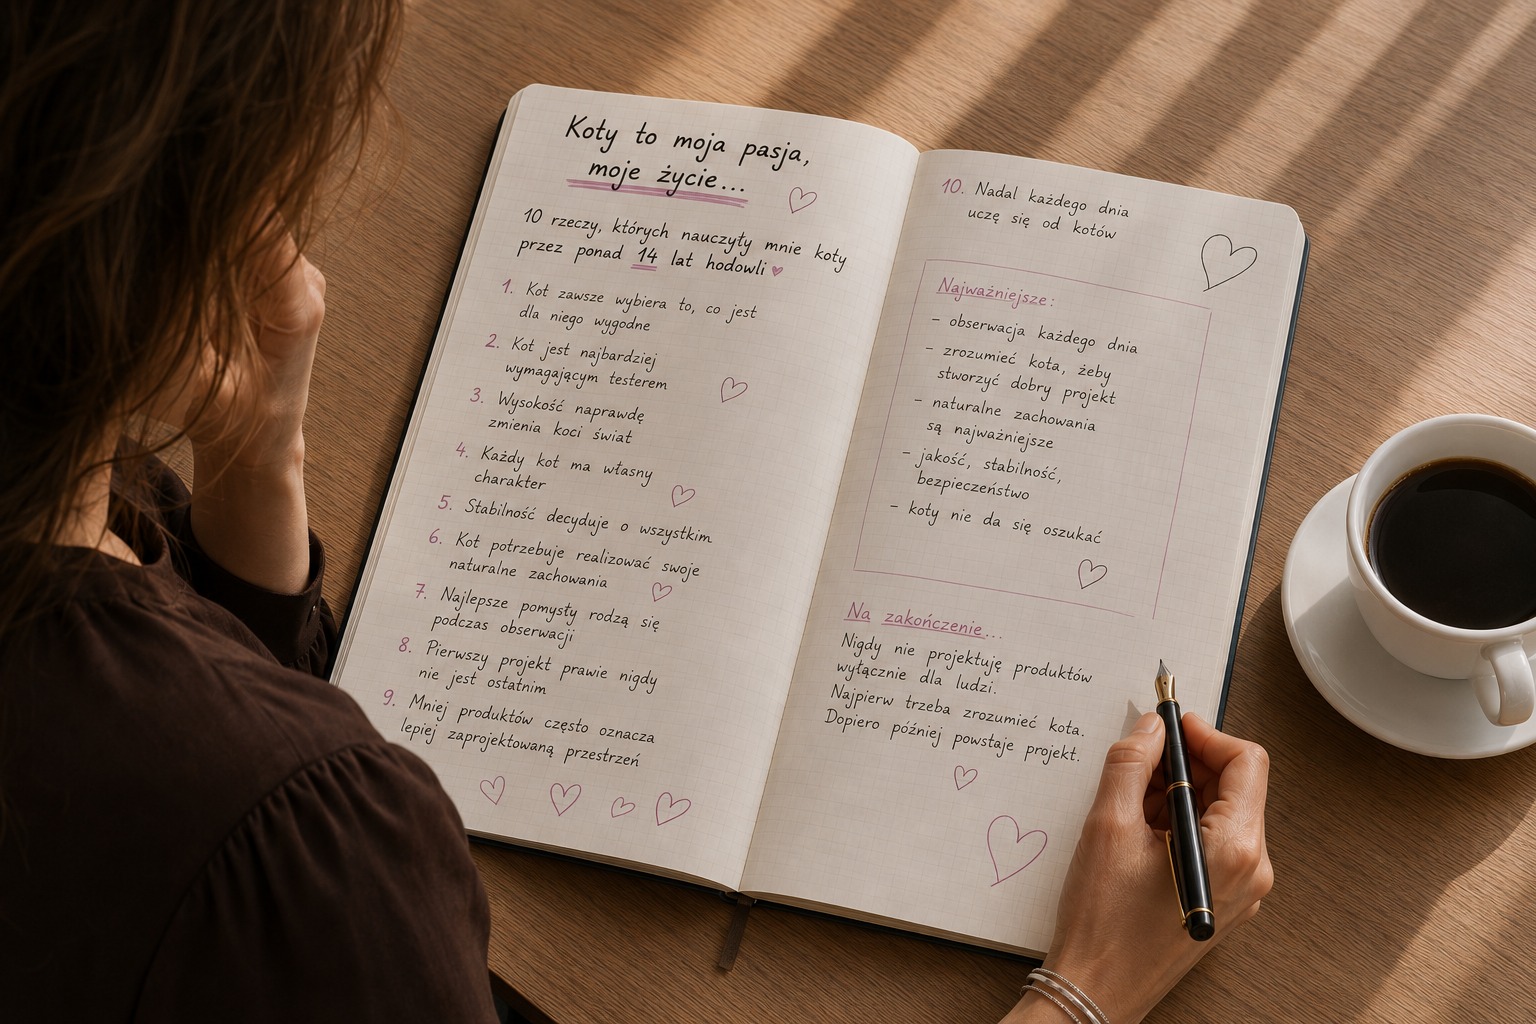 Koty to moja pasja,
moje życie...
10 rzeczy, których nauczyły mnie koty
przez ponad 14 lat hodowli
1. Kot zawsze wybiera to, co jest
dla niego wygodne
2. Kot jest najbardziej
wymagającym testerem
3. Wysokość naprawdę
zmienia koci świat
4. Każdy kot ma własny
charakter
5. Stabilność decyduje o wszystkim
6. Kot potrzebuje realizować swoje
naturalne zachowania
7. Najlepsze pomysły rodzą się
podczas obserwacji
8. Pierwszy projekt prawie nigdy
nie jest ostatnim
9. Mniej produktów często oznacza
lepiej zaprojektowaną przestrzeń
10. Nadal każdego dnia
uczę się od kotów
Najważniejsze:
- obserwacja każdego dnia
- zrozumieć kota, żeby
stworzyć dobry projekt
- naturalne zachowania
są najważniejsze
- jakość, stabilność,
bezpieczeństwo
- koty nie da się oszukać
Na zakończenie...
Nigdy nie projektuję produktów
wyłącznie dla ludzi.
Najpierw trzeba zrozumieć kota.
Dopiero później powstaje projekt.